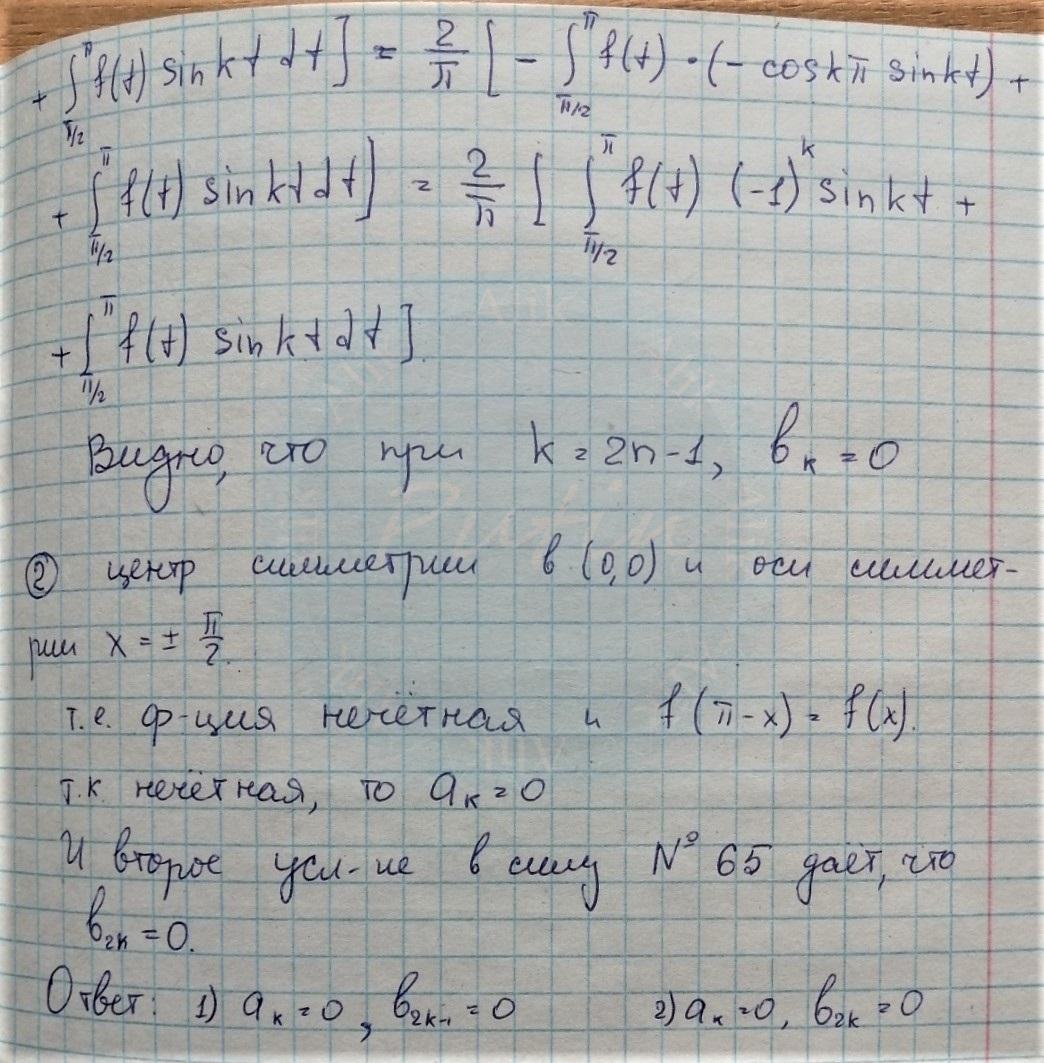 + ∫_{π/2}^{π} f(t) sin kt dt ] = 2/π [ - ∫_{π/2}^{π} f(t) · (- cos kπ sin kt) +
+ ∫_{π/2}^{π} f(t) sin kt dt ] = 2/π [ ∫_{π/2}^{π} f(t) (-1)^k sin kt +
+ ∫_{π/2}^{π} f(t) sin kt dt ].
Видно, что при k = 2n-1, b_k = 0
② центр симметрии в (0,0) и оси симмет-
рии x = ± π/2.
т.е. ф-ция нечётная и f(π-x) = f(x).
т.к нечётная, то a_k = 0
И второе усл-ие в силу № 65 даёт, что
b_{2k} = 0.
Ответ: 1) a_k = 0, b_{2k-1} = 0 2) a_k = 0, b_{2k} = 0